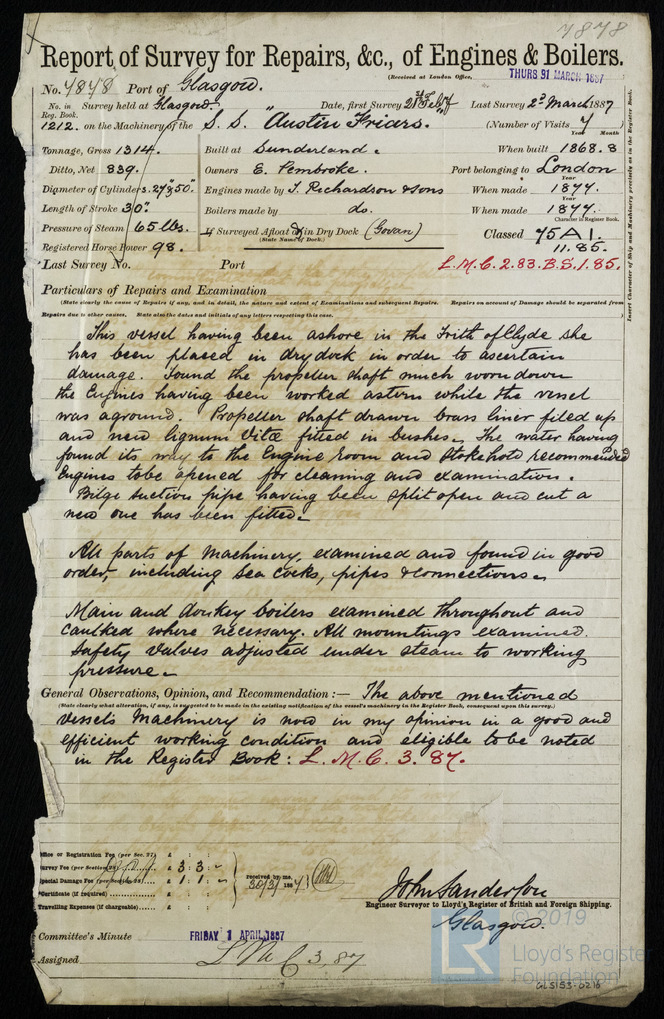 7878
Report of Survey for Repairs, &c., of Engines & Boilers.
(Received at London Office, THURS 31 MARCH 1887
No. 7878 Port of Glasgow.
No. in Reg. Book. Survey held at Glasgow. Date, first Survey 21st Feby Last Survey 2d March 1887
1212. on the Machinery of the S. S. "Austin Friars." (Number of Visits 7)
Tonnage, Gross 1314. Built at Sunderland. When built Year Month 1868. 8
Ditto, Net 839. Owners E. Pembroke. Port belonging to London
Diameter of Cylinders. 27" & 50". Engines made by T. Richardson & Sons When made Year 1877.
Length of Stroke 30". Boilers made by do. When made Year 1877.
Pressure of Steam 65 lbs. If Surveyed Afloat or in Dry Dock (Govan) Classed Character in Register Book. 75 A 1.
(State Name of Dock.)
Registered Horse Power 98. 11.85.
Last Survey No. Port L.M.C. 2.83. B.S. 1.85.
Particulars of Repairs and Examination
(State clearly the cause of Repairs if any, and in detail, the nature and extent of Examinations and subsequent Repairs. Repairs on account of Damage should be separated from
Repairs due to other causes. State also the dates and initials of any letters respecting this case.
Insert Character of Ship and Machinery precisely as in the Register Book.
This vessel having been ashore in the Frith of Clyde she
has been placed in dry dock in order to ascertain
damage. Found the propeller shaft much worn down
the Engines having been worked astern while the vessel
was aground. Propeller shaft drawn brass liner filed up
and new lignum Vitæ fitted in bushes. The water having
found its way to the Engine room and Stokehold recommended
Engines to be opened for cleaning and examination.
Bilge suction pipe having been split open and cut a
new one has been fitted.
All parts of Machinery, examined and found in good
order, including Sea Cocks, pipes & connections.
Main and donkey boilers examined throughout and
caulked where necessary. All mountings examined.
Safety Valves adjusted under steam to working
pressure.
General Observations, Opinion, and Recommendation:— The above mentioned
(State clearly what alteration, if any, is suggested to be made in the existing notification of the vessel's machinery in the Register Book, consequent upon this survey.)
vessels Machinery is now in my opinion in a good and
efficient working condition and eligible to be noted
in the Register Book: L. M. C. 3. 87.
Office or Registration Fee (per Sec. 27) £ : :
Survey Fee (per Section 28) £ 3 : 3 :
Special Damage Fee £ 1 : 1 :
*Certificate (if required) £ : :
Travelling Expenses (if chargeable) £ : :
received by me, 30/3/1887
John Sanderson
Engineer Surveyor to Lloyd's Register of British and Foreign Shipping.
Glasgow.
Committee's Minute FRIDAY 1 APRIL 1887
Assigned L M C 3, 87
© 2019
LR
Lloyd's Register
Foundation
GLS153-0216